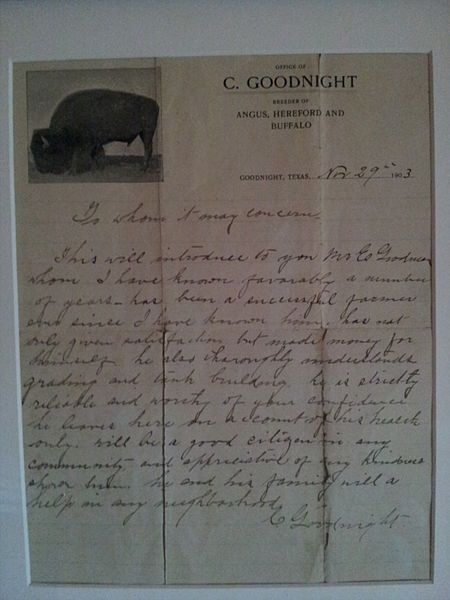 OFFICE OF
C. GOODNIGHT
BREEDER OF
ANGUS, HEREFORD AND
BUFFALO
GOODNIGHT, TEXAS, Nov 29th 1903
To Whom it may concern,
This will introduce to you Mr E
whom I have known favorably a number
of years - has been a successful farmer
ever since I have known him. has not
only given satisfaction but made money for
himself he also thoroughly understands
grading and tank building. he is strictly
reliable and worthy of your confidence
he leaves here on account of his health
only. will be a good citizen in any
community and of any kindness
shown him. he and his family will a
help in any neighborhood
C Goodnight